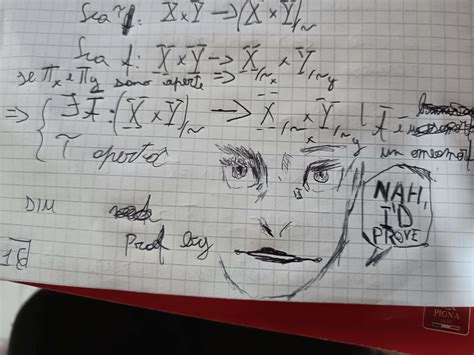 Sia π: X×Y → (X×Y)/~
Sia f: X×Y → X/~x × Y/~y
se πx e πy sono aperte =>
=> { ∃ f̄: (X×Y)/~ → X/~x × Y/~y | f̄ è un omeomorf
π aperta
DIM
Proof by
NAH,
I'D
PROVE
PIGNA